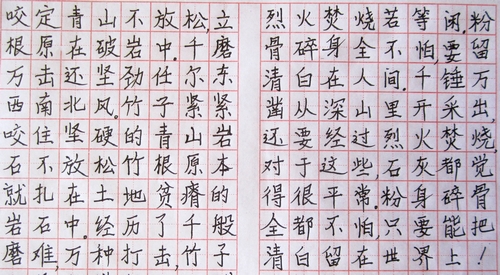 咬定青山不放松,立
根原在破岩中。千磨
万击还坚劲任尔东
西南北风。竹子紧紧
咬住坚硬的青山岩
石不放松竹根原本
就扎在土地贫瘠的
岩石中。经历了千般
磨难,万种打击,竹子
烈火焚烧若等闲。粉
骨碎身全不怕,要留
清白在人间。千锤万
凿从深山里开采出,
还要经过烈火焚烧,
对于这些,石灰都觉
得很平常。粉身碎骨
全都不怕,只要能把
清白留在世界上!